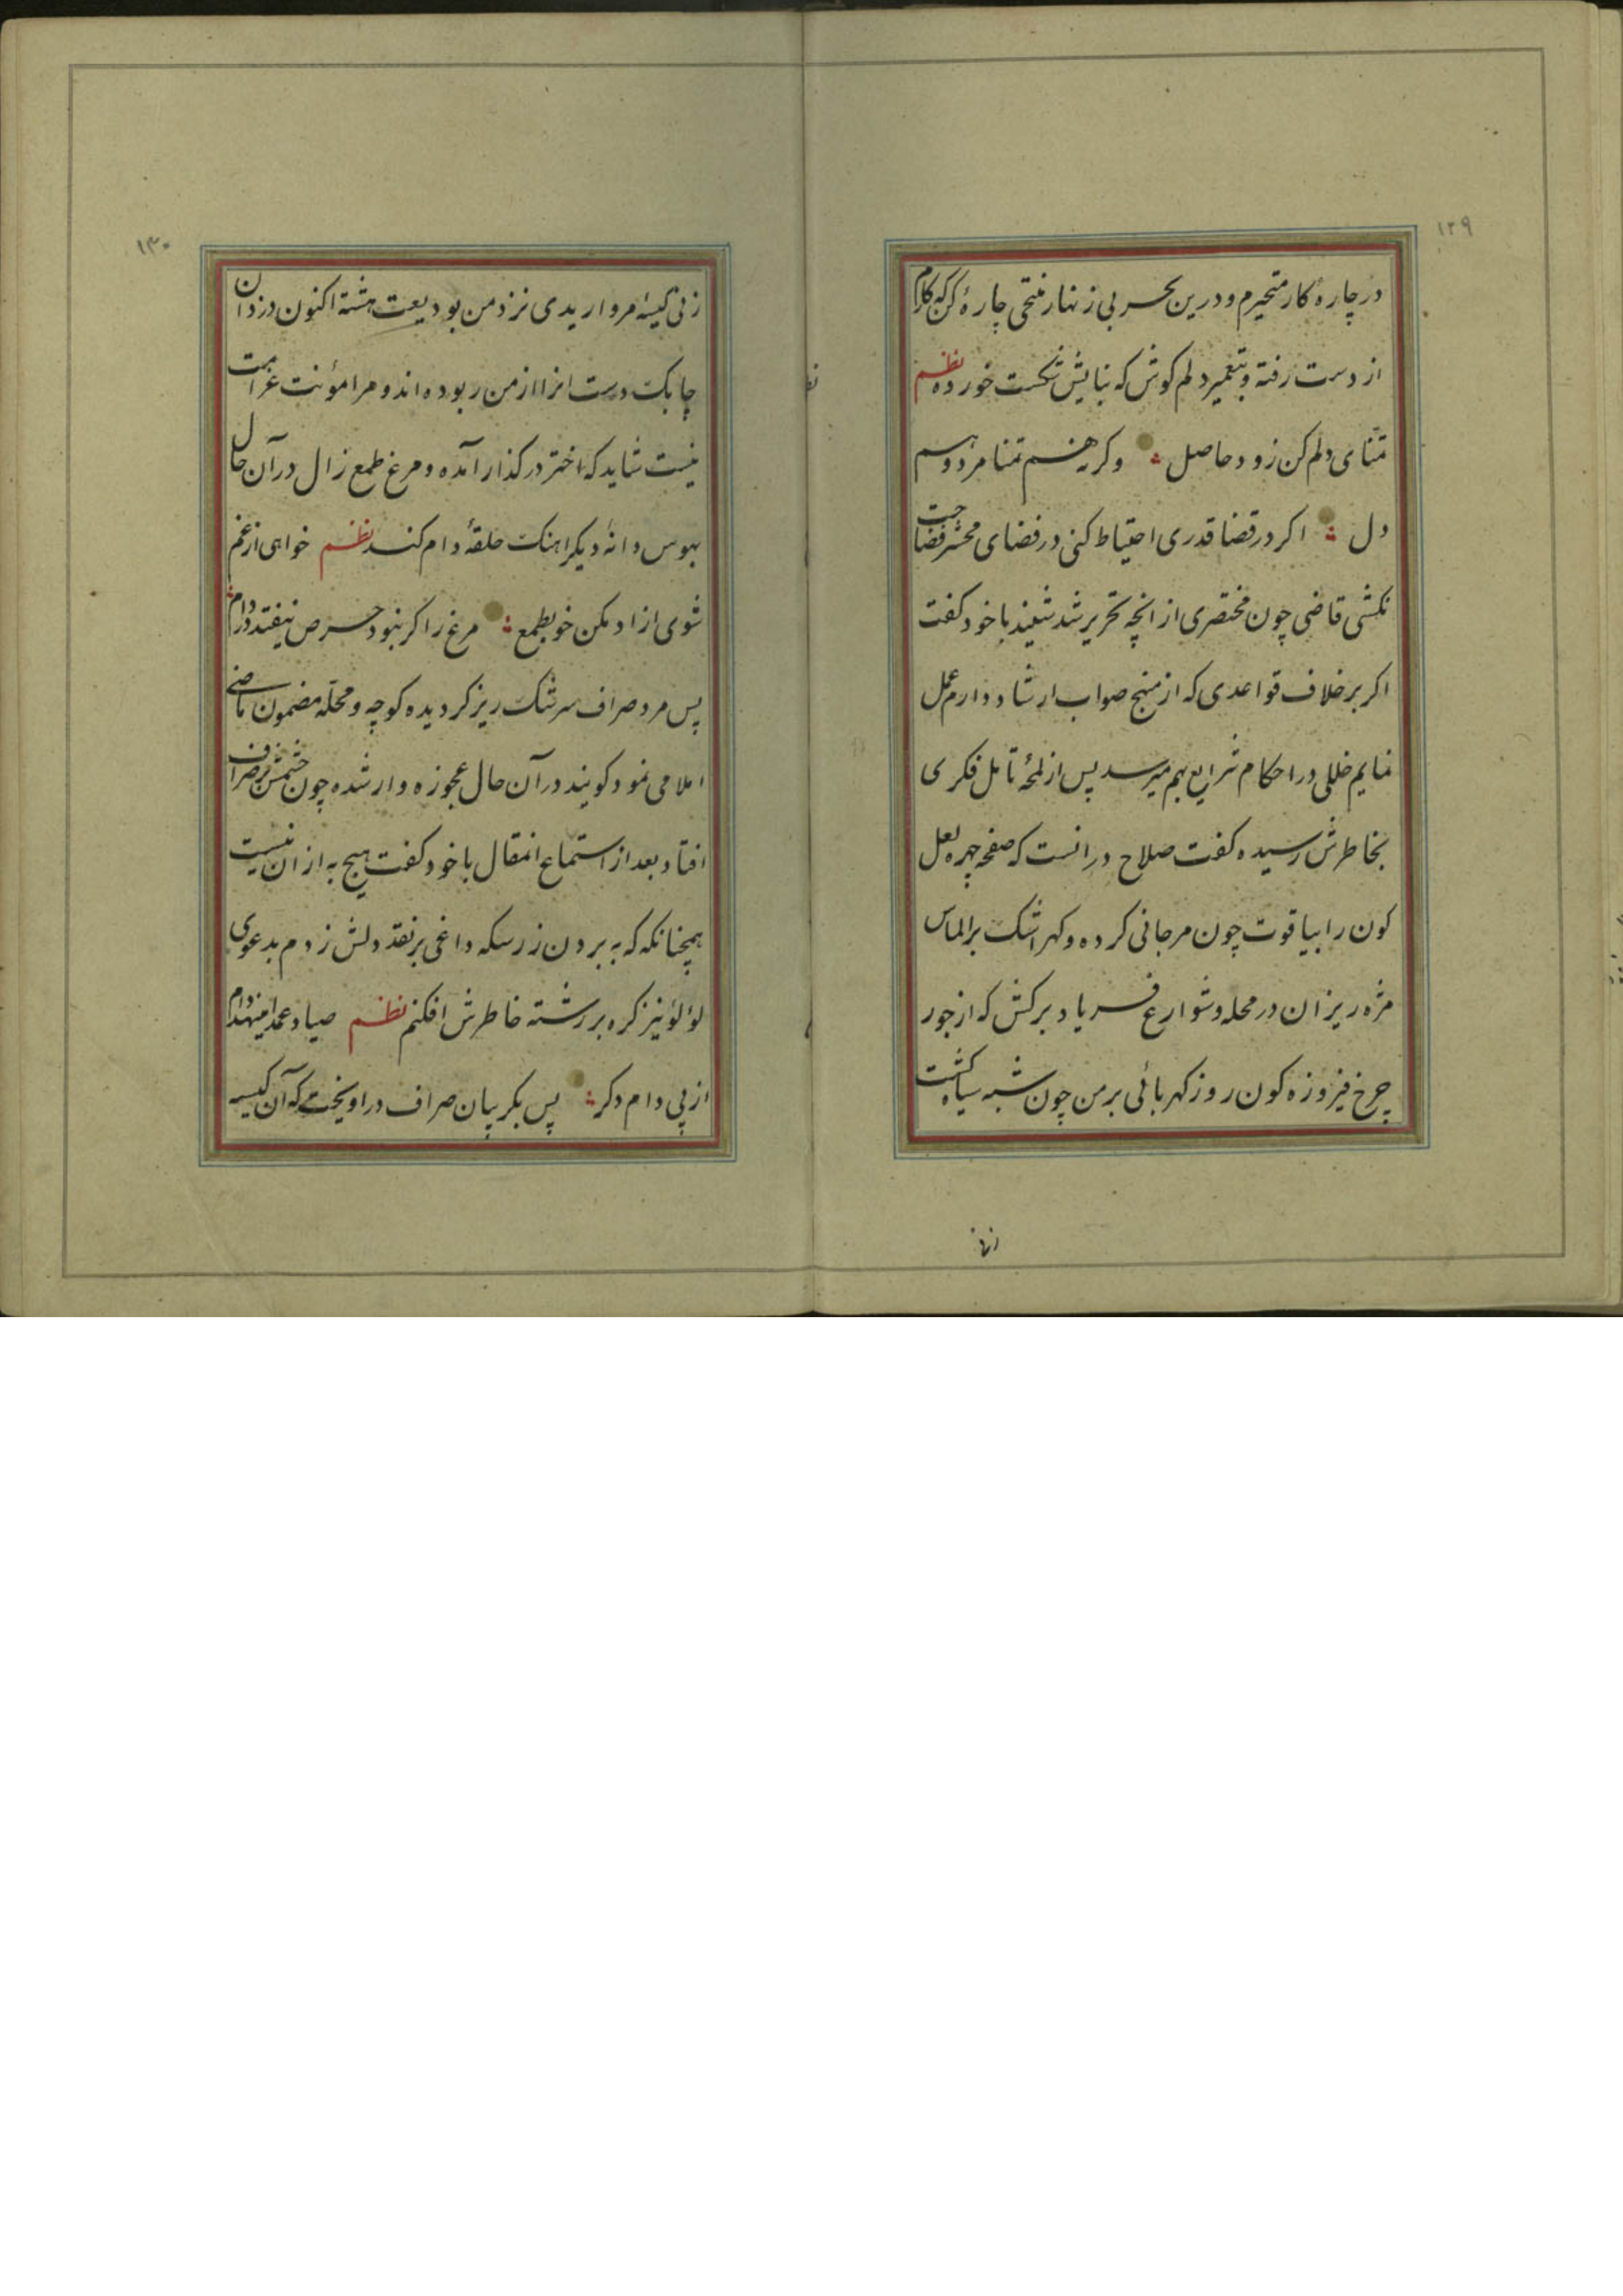 ۱۲۹
در چاره کار متحیرم و درین بحر بی زنهار منتحی چارهٔ کن که کارم
از دست رفته و بتعمیر دلم کوش که بنایش شکست خورده نظم
تمنای دلم کن زود حاصل وکرنه هم تمنا مرد و هم
دل اکر در قضا قدری احتیاط کنی در فضای محشر فضاحت
نکشی قاضی چون مختصری از انچه تحریر شد شنید با خود کفت
اکر بر خلاف قواعدی که از منهج صواب ارشاد دارم عمل
نمایم خللی در احکام شرایع بهم میرسد پس از لمحهٔ تامل فکری
بخاطرش رسیده کفت صلاح در انست که صفحه چهره لعل
کون را بیاقوت چون مرجانی کرده و کهر اشک بر الماس
مژه ریزان در محله و شوارع فریاد برکش که از جور
چرخ فیروزه کون روز کهربائی بر من چون شبه سیاه کشت
۱۳۰
زنی کیسهٔ مرواریدی نزد من بودیعت هشته اکنون دزدان
چابک دست انرا از من ربوده اند و مرا مؤنت غرامت
نیست شاید که اختر در کذار آمده و مرغ طمع زال در آن حال
بهوس دانهٔ دیکر اهنک حلقهٔ دام کند نظم خواهی از غم
شوی ازاد مکن خو بطمع مرغ را کر نبود حرص نیفتد در دام
پس مرد صراف سرشک ریز کردیده کوچه و محله مضمون ماضی
املا می نمود کویند در آن حال عجوزه وارشده چون چشمش بر صراف
افتاد بعد از استماع انمقال با خود کفت هیچ به از ان نیست
همچنانکه که به بردن زر سکه داغی بر نقد دلش زدم بدعوی
لؤلؤ نیز کره بر رشته خاطرش افکنم نظم صیاد عمدا منهد دام
از پی دام دکر پس بکریبان صراف در اویخت که آن کیسه